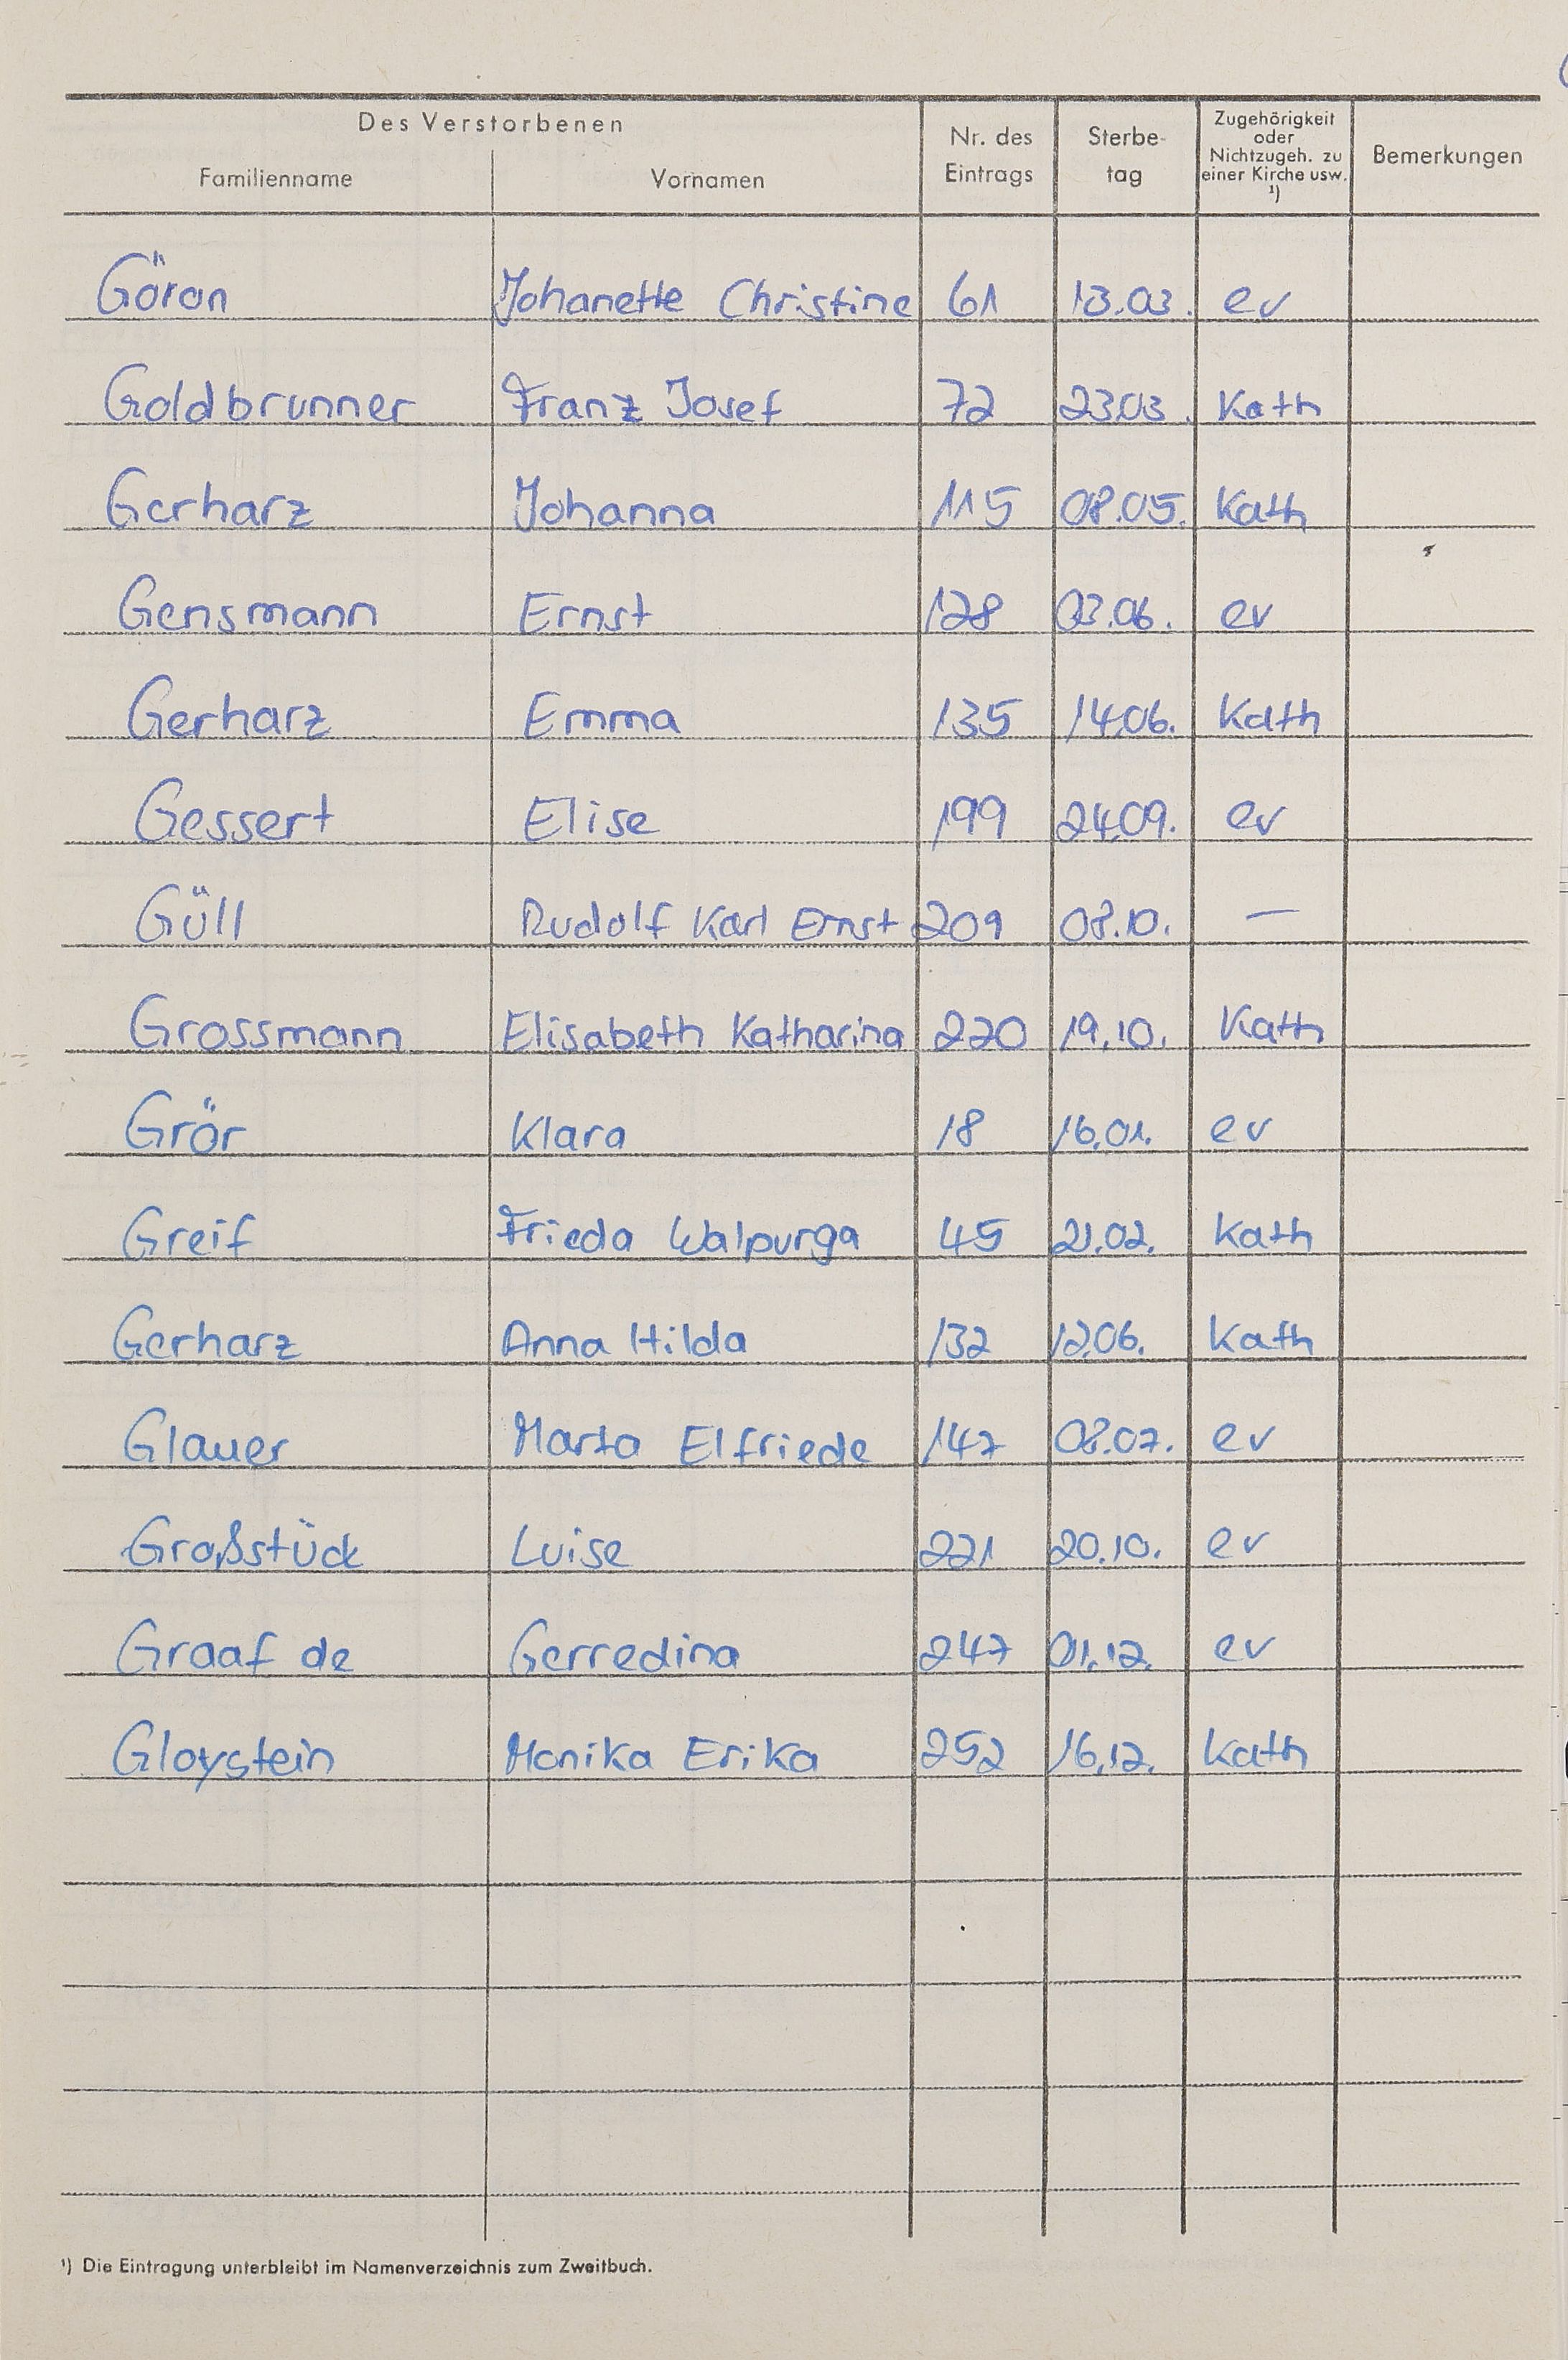 Des Verstorbenen
Familienname Vornamen Nr. des Eintrags Sterbe-tag Zugehörigkeit oder Nichtzugeh. zu einer Kirche usw. ¹) Bemerkungen
Göran Johanette Christine 61 13.03. ev
Goldbrunner Franz Josef 72 23.03. Kath
Gerharz Johanna 115 08.05. Kath
Gensmann Ernst 128 03.06. ev
Gerharz Emma 135 14.06. Kath
Gessert Elise 199 24.09. ev
Güll Rudolf Karl Ernst 209 08.10. —
Grossmann Elisabeth Katharina 220 19.10. Kath
Grör Klara 18 16.01. ev
Greif Frieda Walpurga 45 21.02. Kath
Gerharz Anna Hilda 132 12.06. Kath
Glauer Marta Elfriede 147 08.07. ev
Großstück Luise 221 20.10. ev
Graaf de Gerredina 247 01.12. ev
Gloystein Monika Erika 252 16.12. Kath
¹) Die Eintragung unterbleibt im Namenverzeichnis zum Zweitbuch.